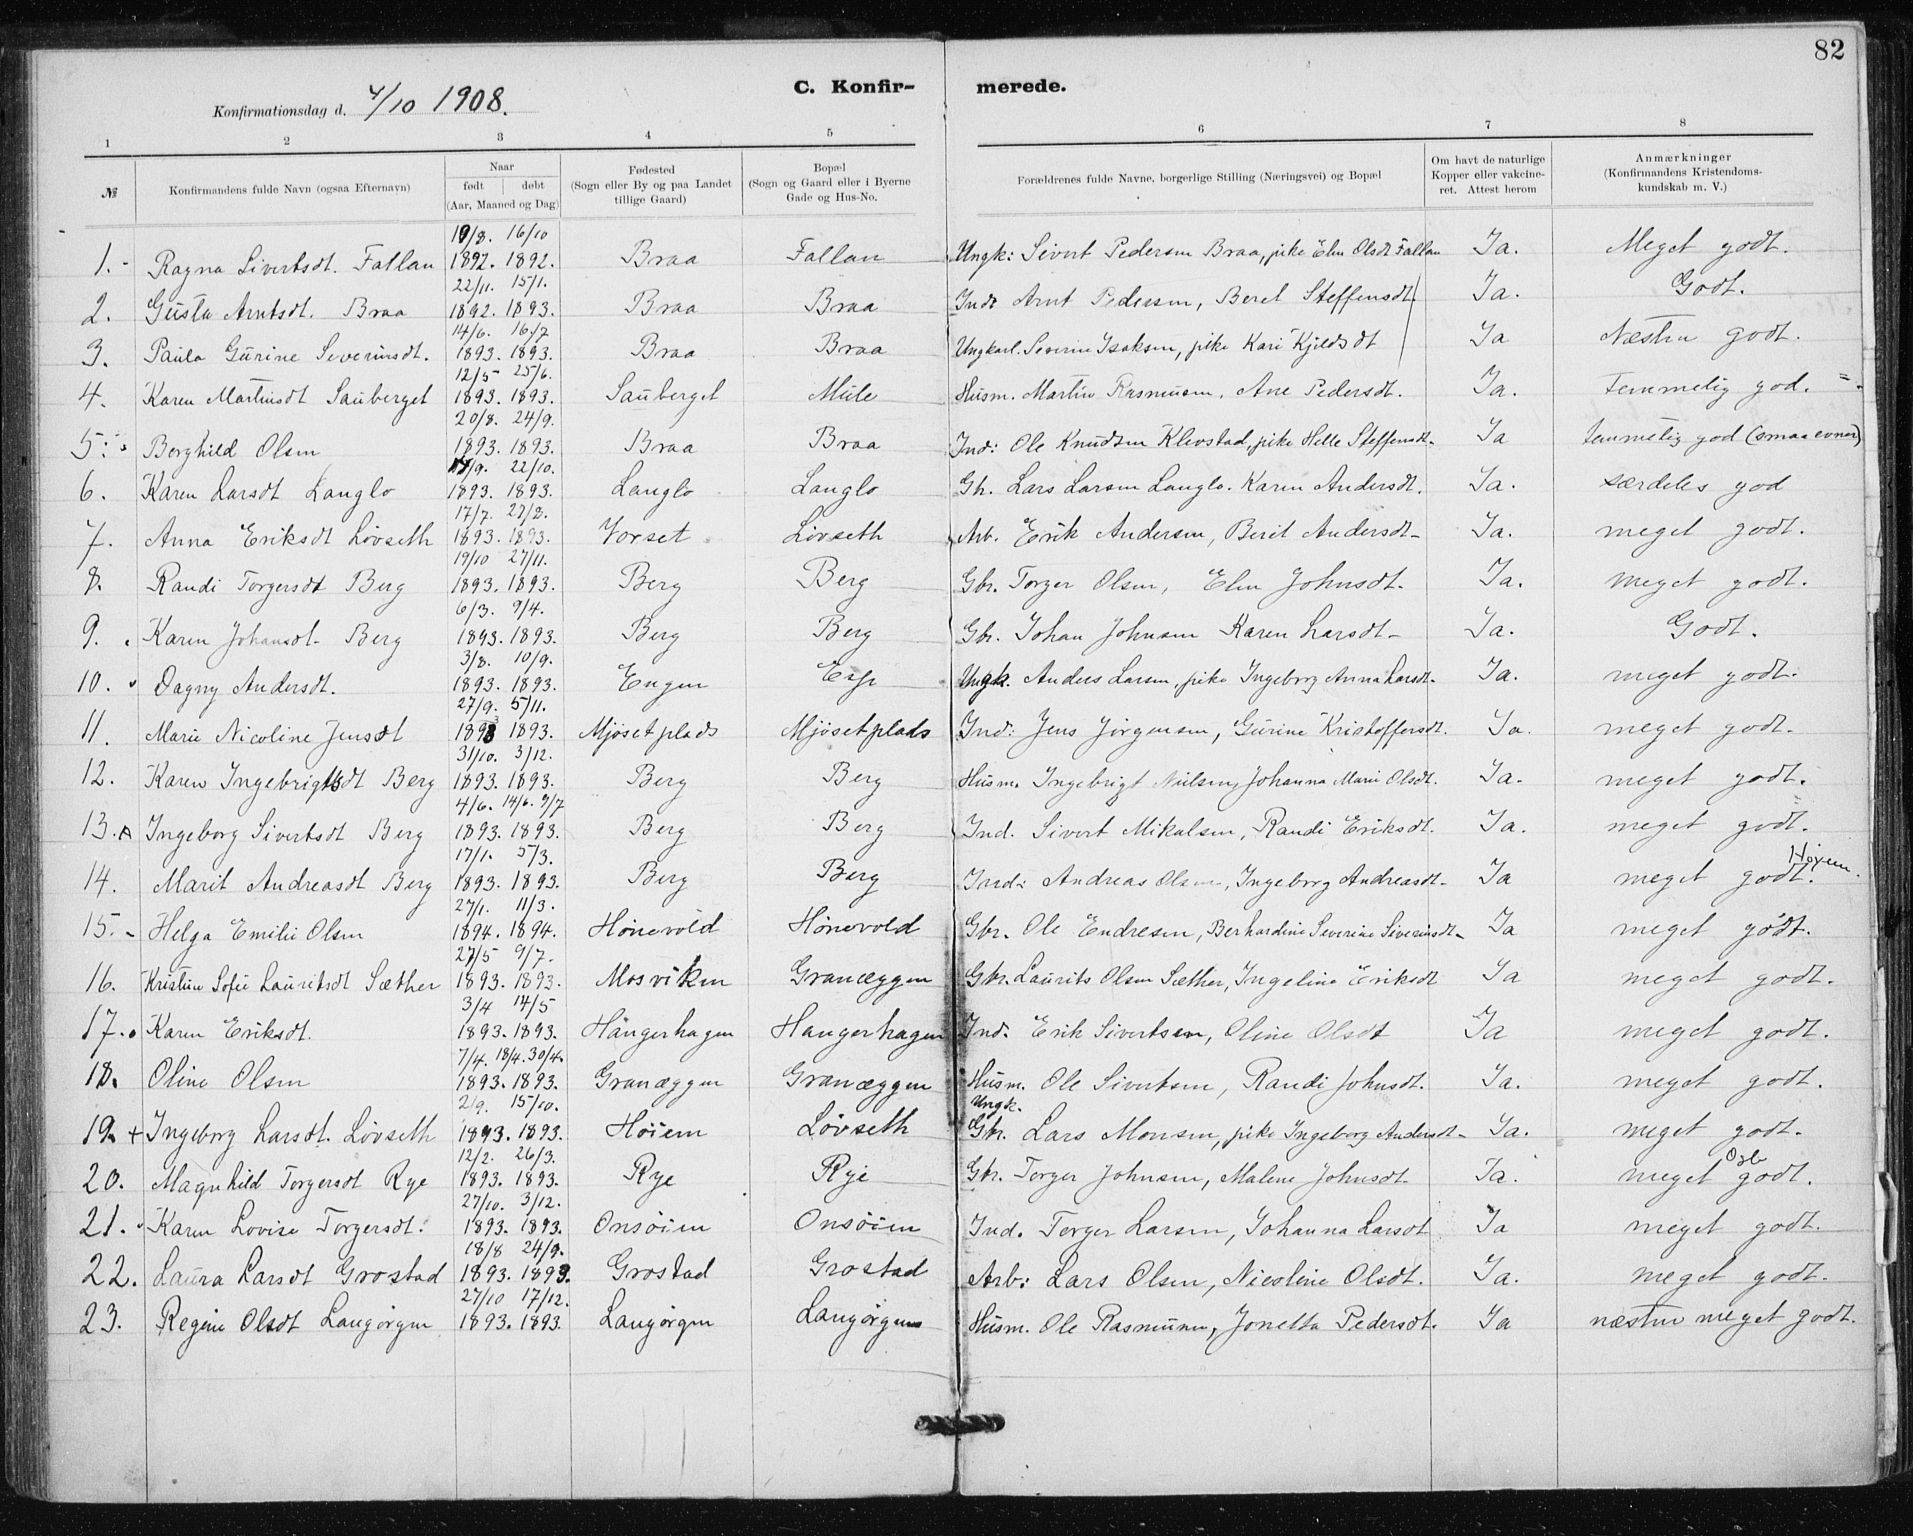 82
C. Konfir- merede.
Konfirmationsdag d. 4/10 1908.
1 2 3 4 5 6 7 8
№ Konfirmandens fulde Navn (ogsaa Efternavn) Naar født døbt (Aar, Maaned og Dag) Fødested (Sogn eller By og paa Landet tillige Gaard) Bopæl (Sogn og Gaard eller i Byerne Gade og Hus-No. Forældrenes fulde Navne, borgerlige Stilling (Næringsvei) og Bopæl Om havt de naturlige Kopper eller vakcineret. Attest herom Anmærkninger (Konfirmandens Kristendomskundskab m. V.)
1. Ragna Sivertsdt. Fallan 19/8. 1892. 16/10 1892. Braa Fallan Ungk: Sivert Pedersen Braa, pike Elen Olsdt Fallan Ja. Meget godt.
2. Gusta Arntsdt. Braa 22/11. 1892. 15/1. 1893. Braa Braa Ind: Arnt Pedersen, Beret Steffensdt. Ja. Godt.
3. Paula Gurine Severinsdt. 14/6. 1893. 16/7 1893. Braa Braa Ungkarl. Severin Isaksen, pike Kari Kjeldsdt Ja Næsten godt.
4. Karen Martinsdt Sauberget 12/5 1893. 25/6. 1893. Sauberget Mule Husm. Martin Rasmussen, Ane Pedersdt. Ja. Temmelig god.
5. Borghild Olsen 20/8. 1893. 24/9. 1893. Braa Braa Ind: Ole Knudsen Klevstad, pike Helle Steffensdt. Ja temmelig god (smaa evner)
6. Karen Larsdt Langlo /9. 1893. 22/10. 1893. Langlo Langlo Gbr. Lars Larsen Langlo. Karen Andersdt. Ja. særdeles god
7. Anna Eriksdt Lövseth 17/7. 1893. 27/8. 1893. Vorset Lövseth Arb. Erik Andersen, Berit Andersdt. Ja. meget godt.
8. Randi Torgersdt Berg 19/10 1893. 27/11. 1893. Berg Berg Gbr. Torger Olsen, Elen Johnsdt. Ja. meget godt.
9. Karen Johansdt. Berg 6/3. 1893. 9/4. 1893. Berg Berg Gbr. Johan Johnsen Karen Larsdt. Ja. Godt.
10. Dagny Andersdt. 3/8. 1893. 10/9. 1893. Engen Esp Ungk. Anders Larsen, pike Ingeborg Anna Larsdt. Ja. meget godt.
11. Marie Nicoline Jensdt 27/9. 1893 5/11. 1893. Mjösetplads Mjösetplads Ind: Jens Jörgensen, Gurine Kristoffersdt. Ja. meget godt.
12. Karen Ingebrigtsdt Berg 31/10. 1893. 3/12. 1893. Berg Berg Husm. Ingebrigt Nielsen, Johanna Marie Olsdt. Ja. meget godt.
13. Ingeborg Sivertsdt Berg 4/6. 1893. 14/6. 9/7 1893. Berg Berg Ind. Sivert Mikalsen, Randi Eriksdt. Ja. meget godt.
14. Marit Andreasdt Berg 17/1. 1893. 5/3. 1893. Berg Berg Jord: Andreas Olsen, Ingeborg Andreasdt. Ja meget godt. Höiem.
15. Helga Emilie Olsen 27/1. 1894. 11/3. 1894. Hönevold Hönevold Gbr. Ole Endresen, Berhardine Severine Siverinsdt. Ja meget godt.
16. Kristine Sofie Lauritsdt Sæther 27/5 1893. 9/7. 1893. Mosviken Granæggen Gbr. Laurits Olsen Sæther, Ingeline Eriksdt Ja meget godt.
17. Karen Eriksdt. 3/4 1893. 14/5 1893. Hangerhagen Hangerhagen Ind. Erik Sivertsen, Oline Olsdt Ja meget godt.
18. Oline Olsen 7/4. 1893. 18/4. 30/4. 1893. Granæggen Granæggen Husm. Ole Sivertsen, Randi Johnsdt. Ja. meget godt.
19. + Ingeborg Larsdt. Lövseth 2/9. 1893. 15/10. 1893. Höiem Lövseth Ungk. Gbr. Lars Monsen, pike Ingeborg Andersdt. Ja. meget godt.
20. Magnhild Torgersdt Rye 12/2. 1893. 26/3. 1893. Rye Rye Gbr. Torger Johnsen, Malene Johnsdt. Ja. meget godt.
21. Karen Lovise Torgersdt. 27/10. 1893. 3/12. 1893. Onsöien Onsöien Ind. Torger Larsen, Johanna Larsdt Ja meget godt.
22. Laura Larsdt Grostad 18/8 1893. 24/9. 1893. Grostad Grostad Arb: Lars Olsen, Nicoline Olsdt. Ja. meget godt.
23. Regine Olsdt Langörgen 27/10 1893. 17/12. 1893. Langörgen Langörgen Husm. Ole Rasmussen, Jonetta Pedersdt. Ja næsten meget godt.